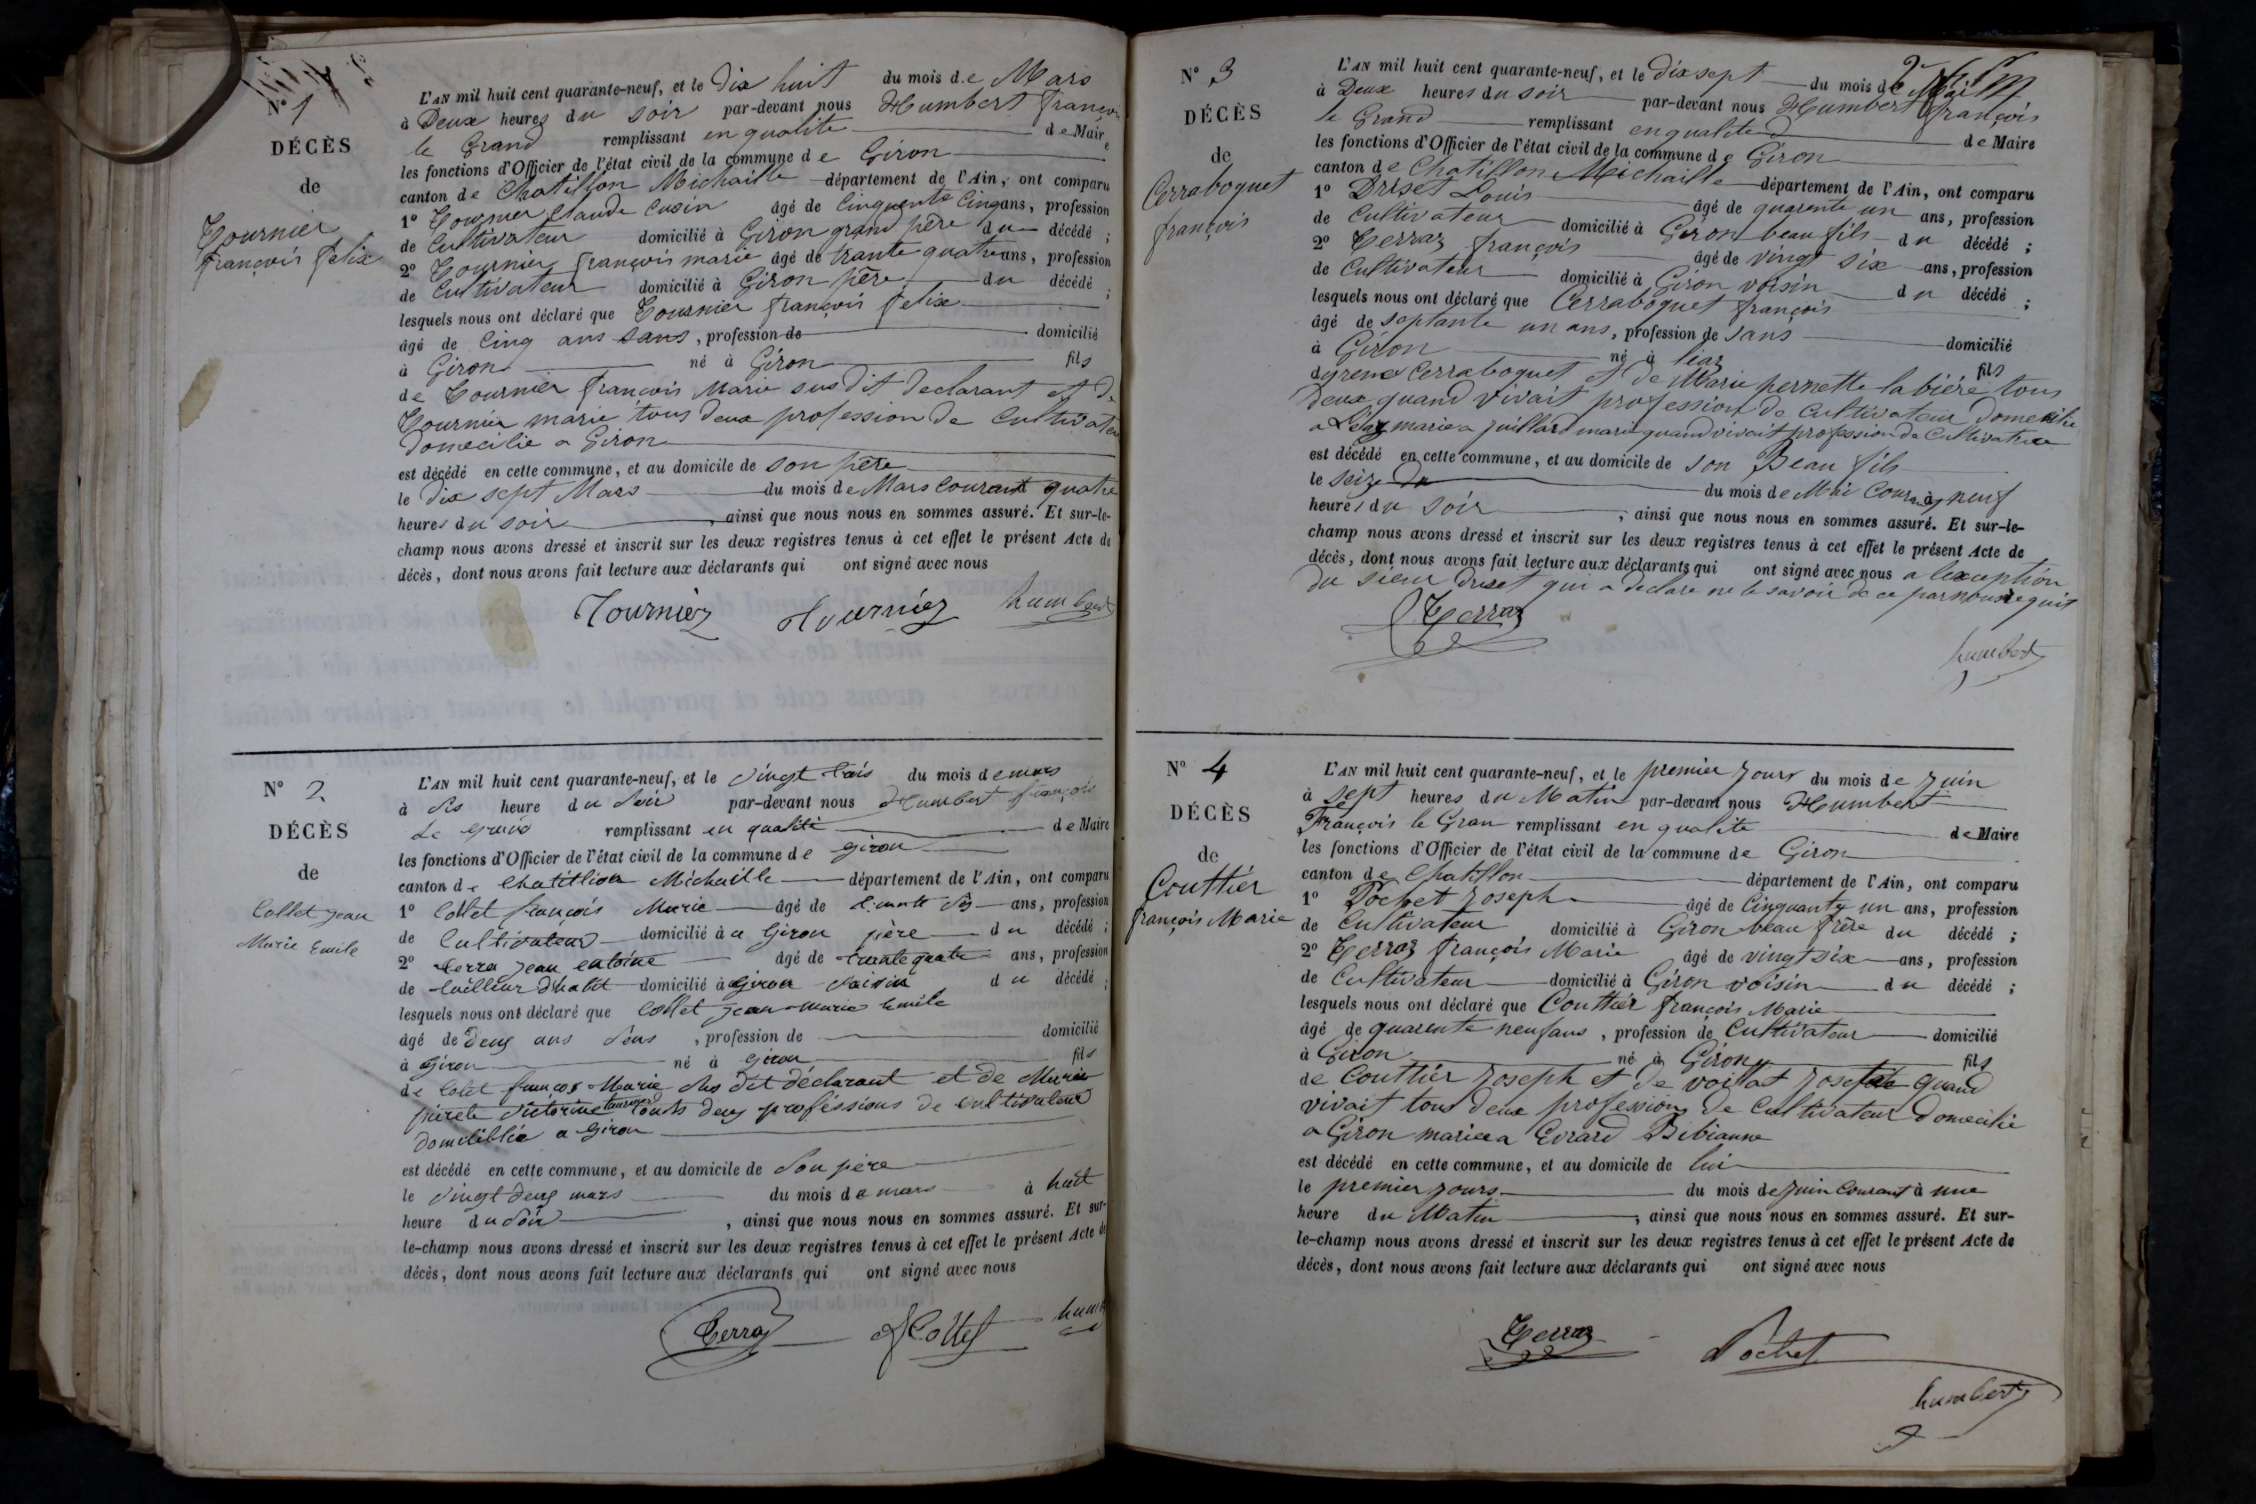 N° 1
DÉCÈS
de
Tournier
françois felix
L'AN mil huit cent quarante-neuf, et le dix huit du mois de Mars
à Deux heures du soir par-devant nous Humbert françois
le Grand remplissant en qualite de Maire
les fonctions d'Officier de l'état civil de la commune de Giron
canton de Chatillon Michaille département de l'Ain, ont comparu
1° Tournier Claude Cusin âgé de Cinquente Cinq ans, profession
de Cultivateur domicilié à Giron grand père du décédé ;
2° Tournier françois marie âgé de trante quatre ans, profession
de Cultivateur domicilié à Giron père du décédé ;
lesquels nous ont déclaré que Tournier françois felix
âgé de Cinq ans sans, profession de domicilié
à Giron né à Giron fils
de Tournier françois Marie sus dit declarant et de
Tournier marie tous deux profession de Cultivateur
Domecilie a Giron
est décédé en cette commune, et au domicile de son père
le dix sept Mars du mois de Mars courant quatre
heures du soir, ainsi que nous nous en sommes assuré. Et sur-le-
champ nous avons dressé et inscrit sur les deux registres tenus à cet effet le présent Acte de
décès, dont nous avons fait lecture aux déclarants qui ont signé avec nous
Tournier Tournier humbert
N° 2
DÉCÈS
de
Collet jean
Marie Emile
L'AN mil huit cent quarante-neuf, et le vingt trois du mois de mars
à dis heure du soir par-devant nous Humbert françois
Le grand remplissant en qualité de Maire
les fonctions d'Officier de l'état civil de la commune de giron
canton de Chatitlion Michaille département de l'Ain, ont comparu
1° Collet françois Marie âgé de ans, profession
de Cultivateur domicilié à a Giron père du décédé ;
2° terra jean entoine âgé de trante quatre ans, profession
de tailleur d'habit domicilié à Giron voisin du décédé ;
lesquels nous ont déclaré que Collet jean-marie Emile
âgé de deux ans sens, profession de domicilié
à giron né à giron fils
de Colet françois-Marie sus dit déclarant et de Marie
pierete victorine tournier touts deux proféssions de cultivateur
domiciliié a Giron
est décédé en cette commune, et au domicile de son père
le vingt deux mars du mois de mars à huit
heure du soir, ainsi que nous nous en sommes assuré. Et sur-
le-champ nous avons dressé et inscrit sur les deux registres tenus à cet effet le présent Acte de
décès, dont nous avons fait lecture aux déclarants qui ont signé avec nous
Terraz Collet humbert
N° 3
DÉCÈS
de
Cerraboquet
françois
L'AN mil huit cent quarante-neuf, et le dix sept du mois de Mai
à Deux heures du soir par-devant nous Humbert françois
le Grand remplissant en qualite de Maire
les fonctions d'Officier de l'état civil de la commune de Giron
canton de Chatillon Michaille département de l'Ain, ont comparu
1° Driset Louis âgé de quarente un ans, profession
de Cultivateur domicilié à Giron beau fils du décédé ;
2° Terraz françois âgé de vingt six ans, profession
de Cultivateur domicilié à Giron voisin du décédé ;
lesquels nous ont déclaré que Cerraboquet françois
âgé de septante un ans, profession de sans domicilié
à Giron né à fils
Cerraboquet et de Marie pernette labière tous
Deux quand vivait profession de Cultivateur Domecilie
a marie a juillard marie quand vivait profession de Cultivatrice
est décédé en cette commune, et au domicile de son Beau fils
le seize du mois de Mai Courant à neuf
heures du soir, ainsi que nous nous en sommes assuré. Et sur-le-
champ nous avons dressé et inscrit sur les deux registres tenus à cet effet le présent Acte de
décès, dont nous avons fait lecture aux déclarants qui ont signé avec nous a lexception
du sieur Driset qui a declare ne le savoir de ce par nous requis
Terraz
humbert
N° 4
DÉCÈS
de
Couttier
françois Marie
L'AN mil huit cent quarante-neuf, et le premier jours du mois de juin
à sept heures du Matin par-devant nous Humbert
François le Gran remplissant en qualite de Maire
les fonctions d'Officier de l'état civil de la commune de Giron
canton de Chatillon département de l'Ain, ont comparu
1° Pochet joseph âgé de Cinquante un ans, profession
de Cultivateur domicilié à Giron beau frère du décédé ;
2° Terraz françois Marie âgé de vingt six ans, profession
de Cultivateur domicilié à Giron voisin du décédé ;
lesquels nous ont déclaré que Couttier françois Marie
âgé de quarente neuf ans, profession de Cultivateur domicilié
à Giron né à Giron fils
de Couttier joseph et de voillat josefte quand
vivait tous deux profession de Cultivateur Domecilié
a Giron mariee a Evrard Bibianne
est décédé en cette commune, et au domicile de lui
le premier jours du mois de juin Courant à une
heure du Matin, ainsi que nous nous en sommes assuré. Et sur-
le-champ nous avons dressé et inscrit sur les deux registres tenus à cet effet le présent Acte de
décès, dont nous avons fait lecture aux déclarants qui ont signé avec nous
Terraz Pochet
humbert